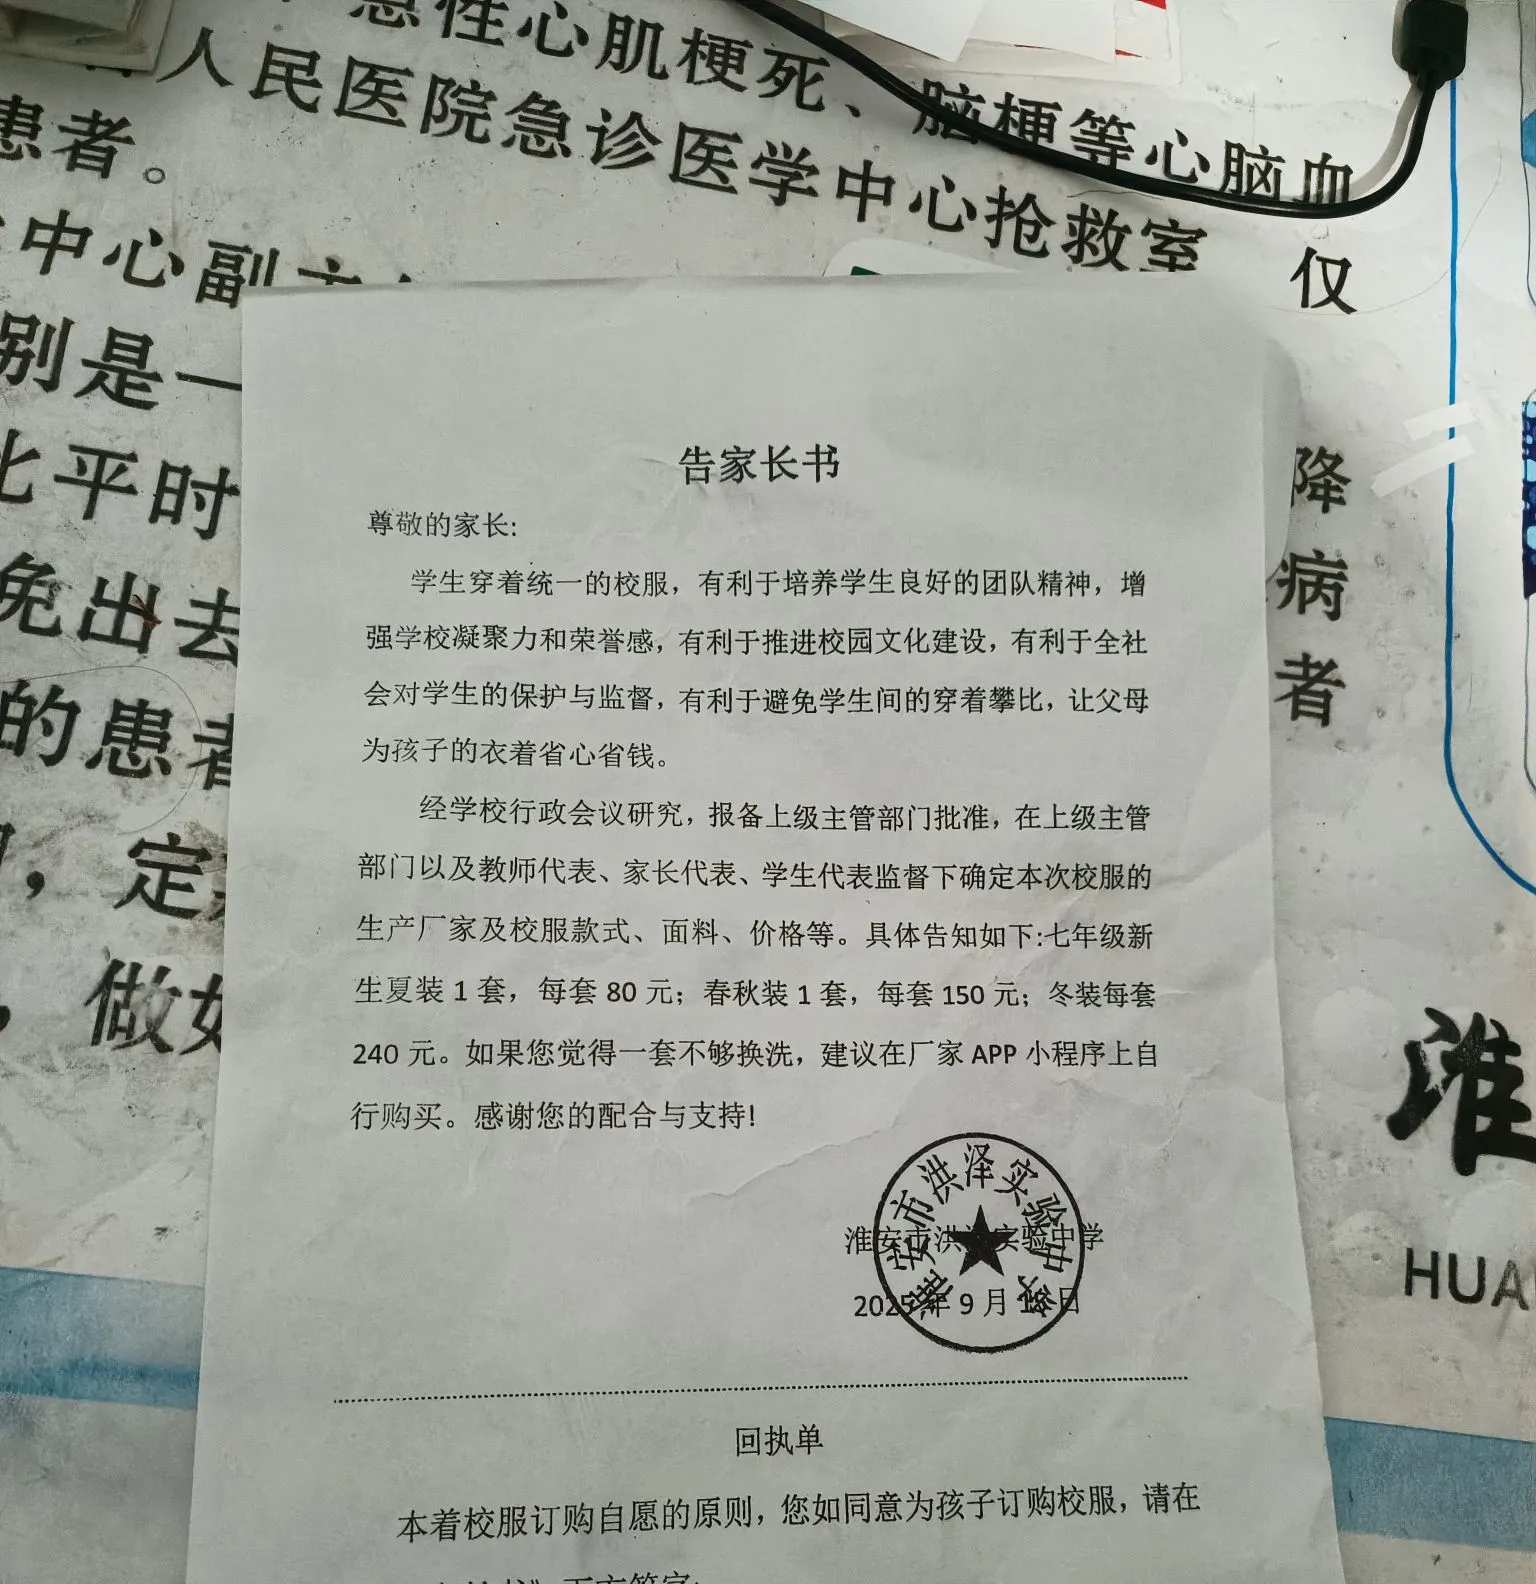 急性心肌梗死、脑梗等心脑血
人民医院急诊医学中心抢救室 仅
患者。
中心副
别是一
降
比平时
病
免出去
者
的患者
，定
，做好
淮
HUA
告家长书
尊敬的家长:
学生穿着统一的校服，有利于培养学生良好的团队精神，增
强学校凝聚力和荣誉感，有利于推进校园文化建设，有利于全社
会对学生的保护与监督，有利于避免学生间的穿着攀比，让父母
为孩子的衣着省心省钱。
经学校行政会议研究，报备上级主管部门批准，在上级主管
部门以及教师代表、家长代表、学生代表监督下确定本次校服的
生产厂家及校服款式、面料、价格等。具体告知如下:七年级新
生夏装 1 套，每套 80 元；春秋装 1 套，每套 150 元；冬装每套
240 元。如果您觉得一套不够换洗，建议在厂家 APP 小程序上自
行购买。感谢您的配合与支持!
淮安市洪泽实验中学
淮安市洪泽实验中学
2025 年 9 月 日
回执单
本着校服订购自愿的原则，您如同意为孩子订购校服，请在